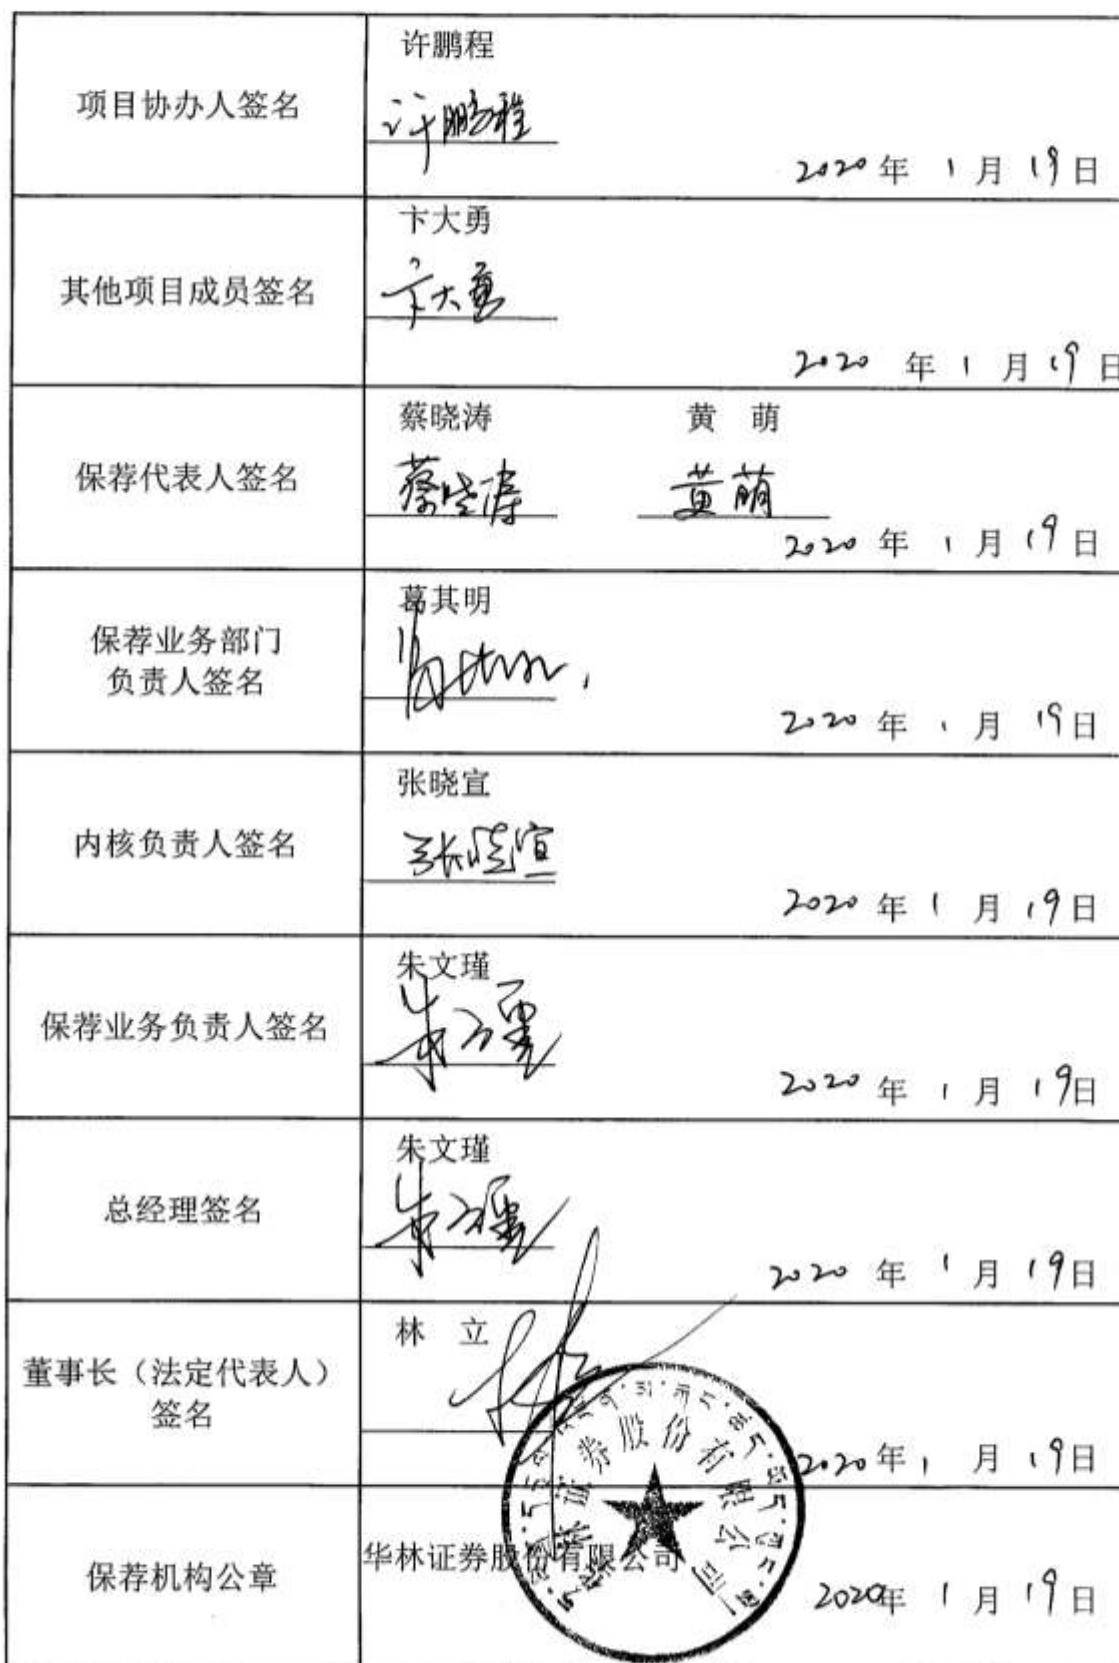 项目协办人签名
许鹏程
许鹏程
2020年 1月 19日
其他项目成员签名
卞大勇
卞大勇
2020 年 1 月 19 日
保荐代表人签名
蔡晓涛 黄 萌
蔡晓涛 黄萌
2020 年 1 月 19 日
保荐业务部门
负责人签名
葛其明
2020 年 1 月 19日
内核负责人签名
张晓宣
张晓宣
2020 年 1 月 19日
保荐业务负责人签名
朱文瑾
朱文瑾
2020 年 1 月 19日
总经理签名
朱文瑾
朱文瑾
2020 年 1 月 19日
董事长（法定代表人）
签名
林 立
2020年 1 月 19日
保荐机构公章
华林证券股份有限公司
华林证券股份有限公司
2020年 1 月 19日